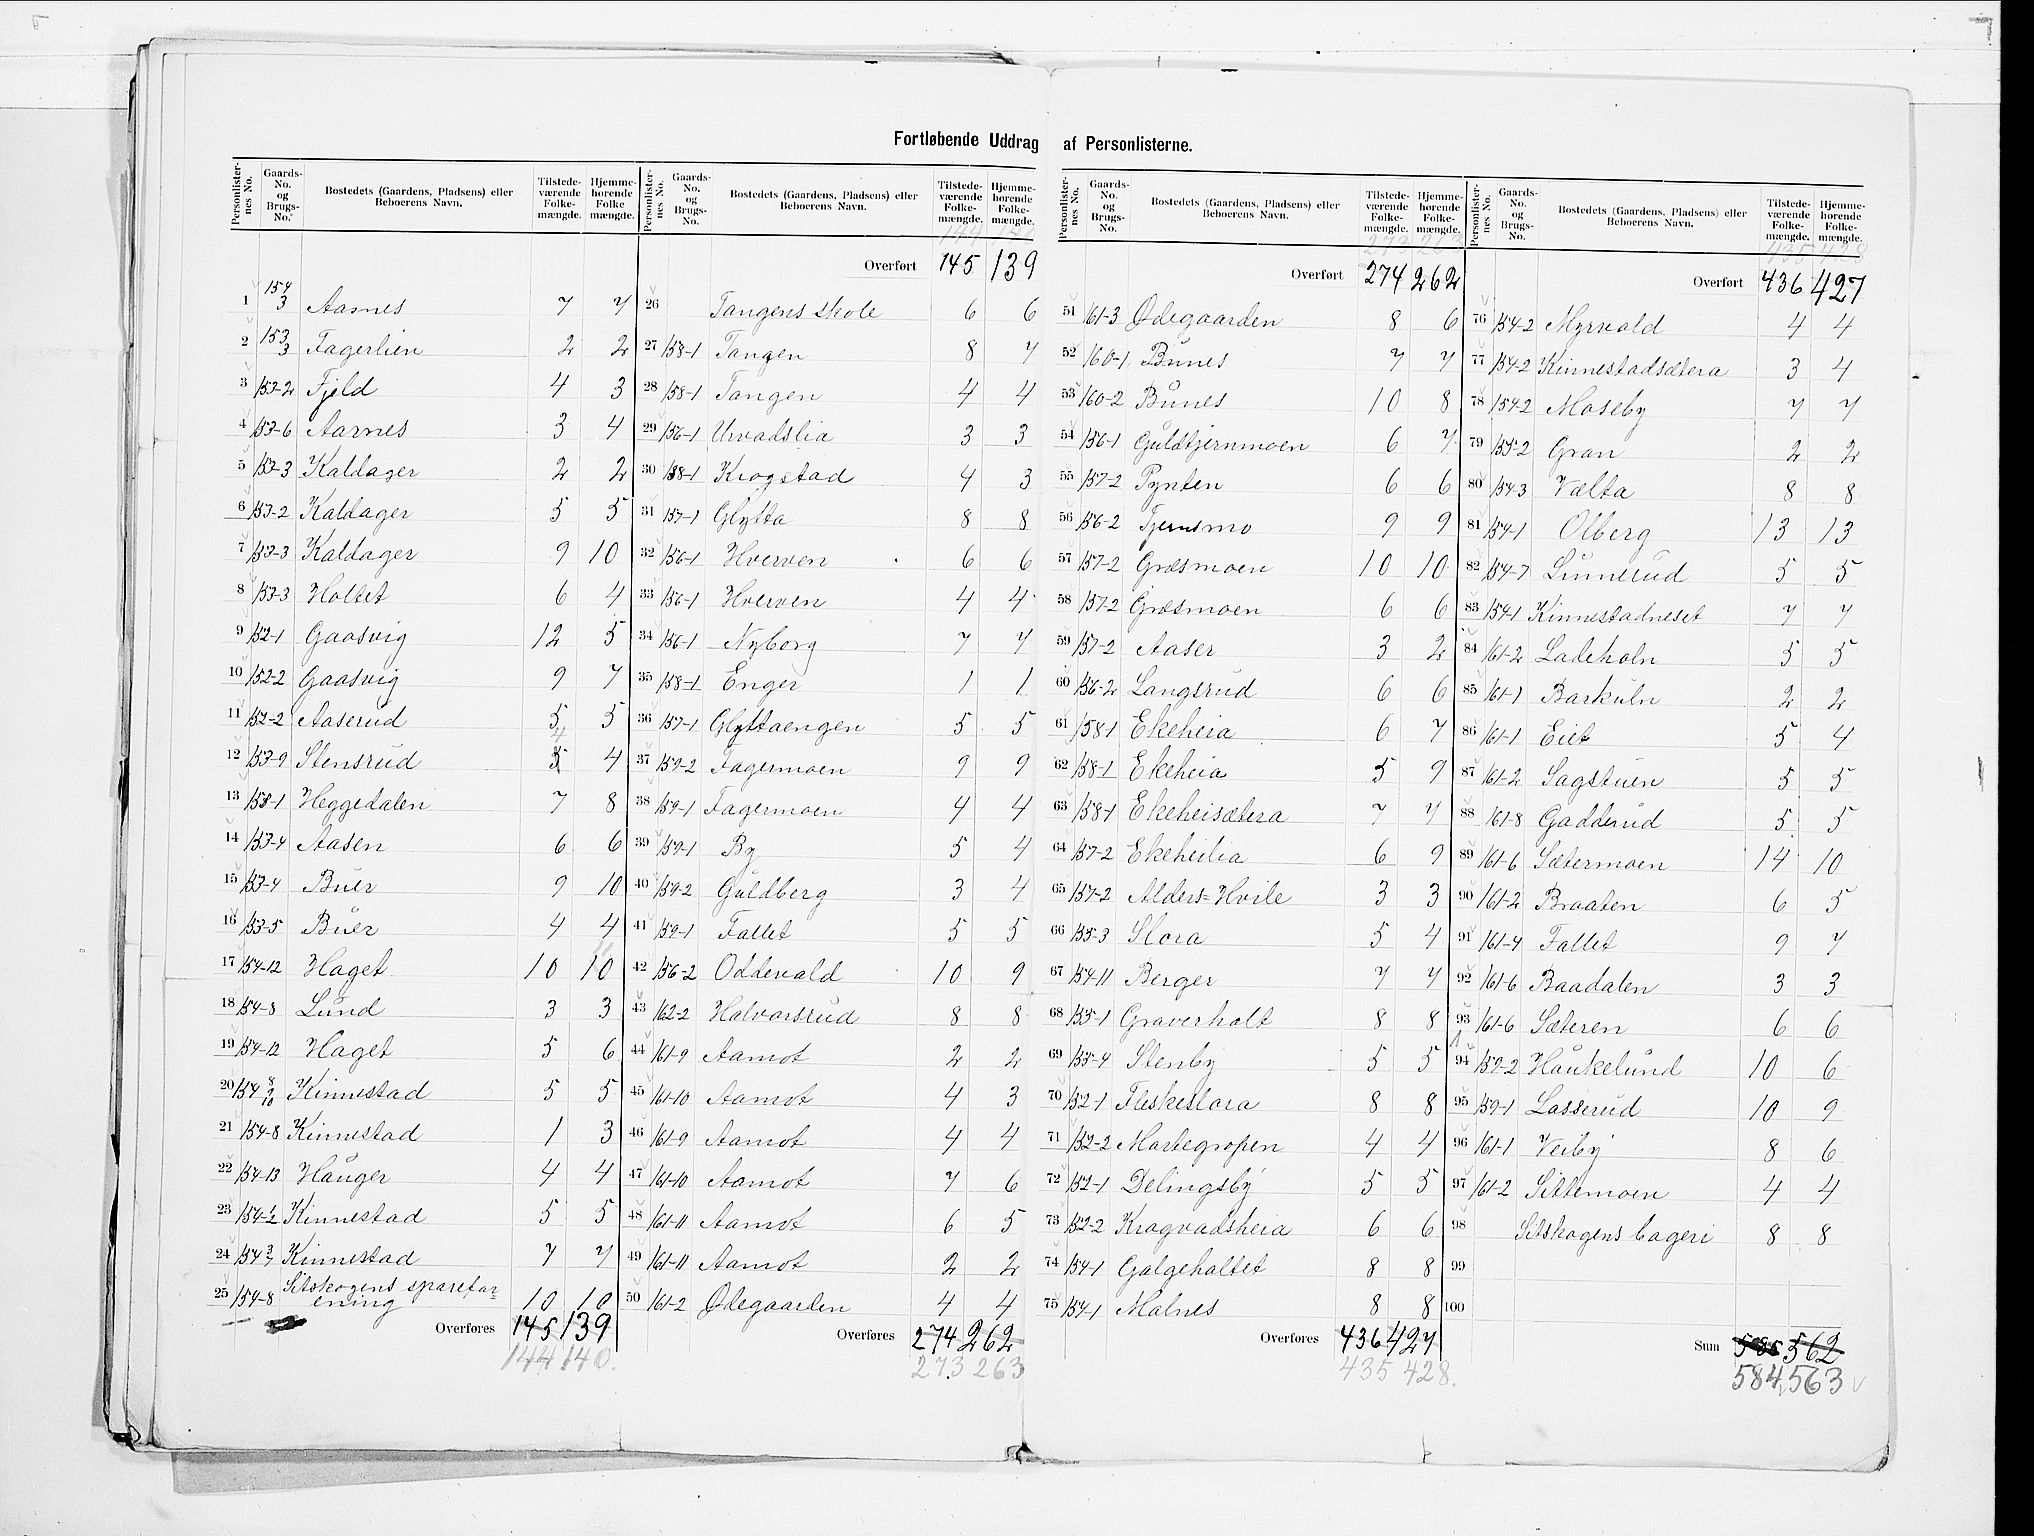 Fortløbende Uddrag af Personlisterne.
Personlisternes No. Gaards-No. og Brugs-No. Bostedets (Gaardens, Pladsens) eller Beboerens Navn. Tilstedeværende Folkemængde. Hjemmehørende Folkemængde.
1 154 3 Aarnes 7 7
2 153 3 Fagerlien 2 2
3 153-2 Fjeld 4 3
4 153-6 Aarnes 3 4
5 153-3 Kaldager 2 2
6 153-2 Kaldager 5 5
7 153-3 Kaldager 9 10
8 153-3 Holtet 6 4
9 152-1 Gaasvig 12 5
10 152-2 Gaasvig 9 7
11 152-2 Aaserud 5 5
12 153-9 Stensrud 4 4
13 158-1 Heggedalen 7 8
14 153-4 Aasen 6 6
15 153-4 Buer 9 10
16 153-5 Buer 4 4
17 154-12 Haget 10 10
18 154-8 Lund 3 3
19 154-12 Haget 5 6
20 154 8 9 10 Kinnestad 5 5
21 154-8 Kinnestad 1 3
22 154-13 Hauger 4 4
23 154-1/2 Kinnestad 5 5
24 154 3/7 Kinnestad 7 7
25 154-8 Sitskogens sparefor-
ening 10 10
Overføres 145 139
144 140.
Personlisternes No. Gaards-No. og Brugs-No. Bostedets (Gaardens, Pladsens) eller Beboerens Navn. Tilstedeværende Folkemængde. Hjemmehørende Folkemængde.
Overført 145 139
26 Tangens skole 6 6
27 158-1 Tangen 8 7
28 158-1 Tangen 4 4
29 156-1 Urvadslia 3 3
30 158-1 Krogstad 4 3
31 157-1 Glytta 8 8
32 156-1 Hverven 6 6
33 156-1 Hverven 4 4
34 156-1 Nyborg 7 7
35 158-1 Enger 1 1
36 157-1 Glyttaengen 5 5
37 159-2 Fagermoen 9 9
38 159-1 Fagermoen 4 4
39 159-1 By 5 4
40 159-2 Guldberg 3 4
41 159-1 Fallet 5 5
42 156-2 Oddevald 10 9
43 162-2 Halvorsrud 8 8
44 161-9 Aamot 2 2
45 161-10 Aamot 4 3
46 161-9 Aamot 4 4
47 161-10 Aamot 7 6
48 161-11 Aamot 6 5
49 161-11 Aamot 2 2
50 161-2 Ødegaarden 4 4
Overføres 274 262
273 263
Personlisternes No. Gaards-No. og Brugs-No. Bostedets (Gaardens, Pladsens) eller Beboerens Navn. Tilstedeværende Folkemængde. Hjemmehørende Folkemængde.
273 263
Overført 274 262
51 161-3 Ødegaarden 8 6
52 160-1 Bunes 7 7
53 160-2 Bunes 10 8
54 156-1 Guldtjernmoen 6 7
55 157-2 Pynten 6 6
56 156-2 Tjernsmo 9 9
57 157-2 Græsmoen 10 10
58 157-2 Græsmoen 6 6
59 157-2 Aaser 3 2
60 156-2 Langsrud 6 6
61 158-1 Ekeheia 6 7
62 158-1 Ekeheia 5 9
63 158-1 Ekeheisætera 7 7
64 157-2 Ekeheilia 6 9
65 157-2 Alders=Hvile 3 3
66 155-3 Slora 5 4
67 154-11 Berger 7 7
68 155-1 Graverholt 8 8
69 155-4 Stenby 5 5
70 152-1 Fleskeslora 8 8
71 152-2 Martegropen 4 4
72 152-1 Delingsby 5 5
73 152-2 Kragvadsheia 6 6
74 154-1 Galgeholtet 8 8
75 154-1 Malnes 8 8
Overføres 436 427
435 428.
Personlisternes No. Gaards-No. og Brugs-No. Bostedets (Gaardens, Pladsens) eller Beboerens Navn. Tilstedeværende Folkemængde. Hjemmehørende Folkemængde.
435 428
Overført 436 427
76 154-2 Myrvald 4 4
77 154-2 Kinnestadsætera 3 4
78 154-2 Moseby 7 7
79 155-2 Gran 2 2
80 154-3 Vælta 8 8
81 154-1 Olberg 13 13
82 154-7 Linnerud 5 5
83 154-1 Kinnestadneset 7 7
84 161-2 Ladeholn 5 5
85 161-1 Barkuln 2 2
86 161-1 Eiet 5 4
87 161-2 Sagstuen 5 5
88 161-8 Gadderud 5 5
89 161-6 Sætermoen 14 10
90 161-2 Braaten 6 5
91 161-4 Fallet 9 7
92 161-6 Baadalen 3 3
93 161-6 Sæteren 6 6
94 159-2 Haukelund 10 6
95 159-1 Lasserud 10 9
96 161-1 Veiby 8 6
97 161-2 Sittemoen 4 4
98 Sitskogens bageri 8 8
99
100
Sum 562
584 563